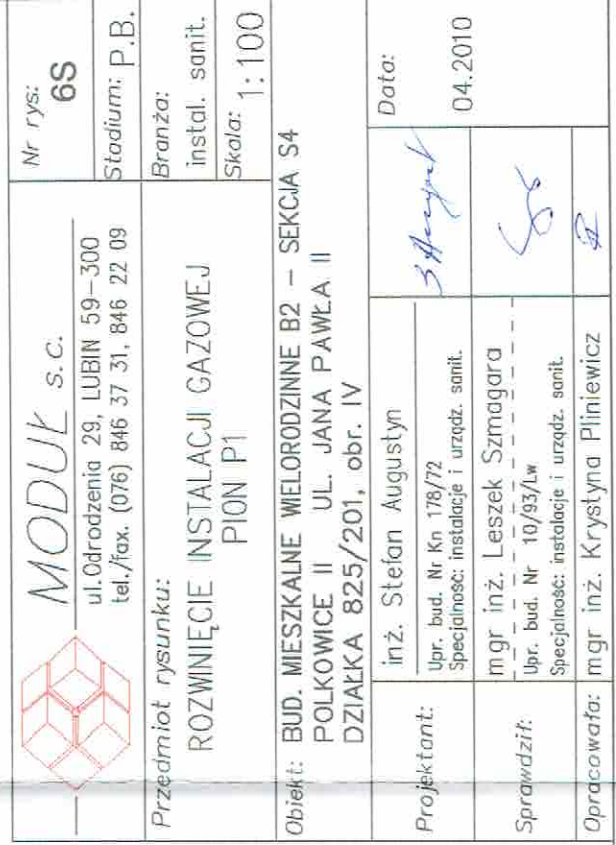 MODUŁ s.c.
ul.Odrodzenia 29, LUBIN 59-300
tel./fax. (076) 846 37 31, 846 22 09
Nr rys:
6S
Stadium: P.B.
Przedmiot rysunku:
ROZWINIĘCIE INSTALACJI GAZOWEJ
PION P1
Branża:
instal. sanit.
Skala: 1:100
Obiekt: BUD. MIESZKALNE WIELORODZINNE B2 – SEKCJA S4
POLKOWICE II UL. JANA PAWŁA II
DZIAŁKA 825/201, obr. IV
Projektant:
inż. Stefan Augustyn
Upr. bud. Nr Kn 178/72
Specjalność: instalacje i urządz. sanit.
Data:
04.2010
Sprawdził:
mgr inż. Leszek Szmagara
Upr. bud. Nr 10/93/Lw
Specjalność: instalacje i urządz. sanit.
Opracowała: mgr inż. Krystyna Pliniewicz